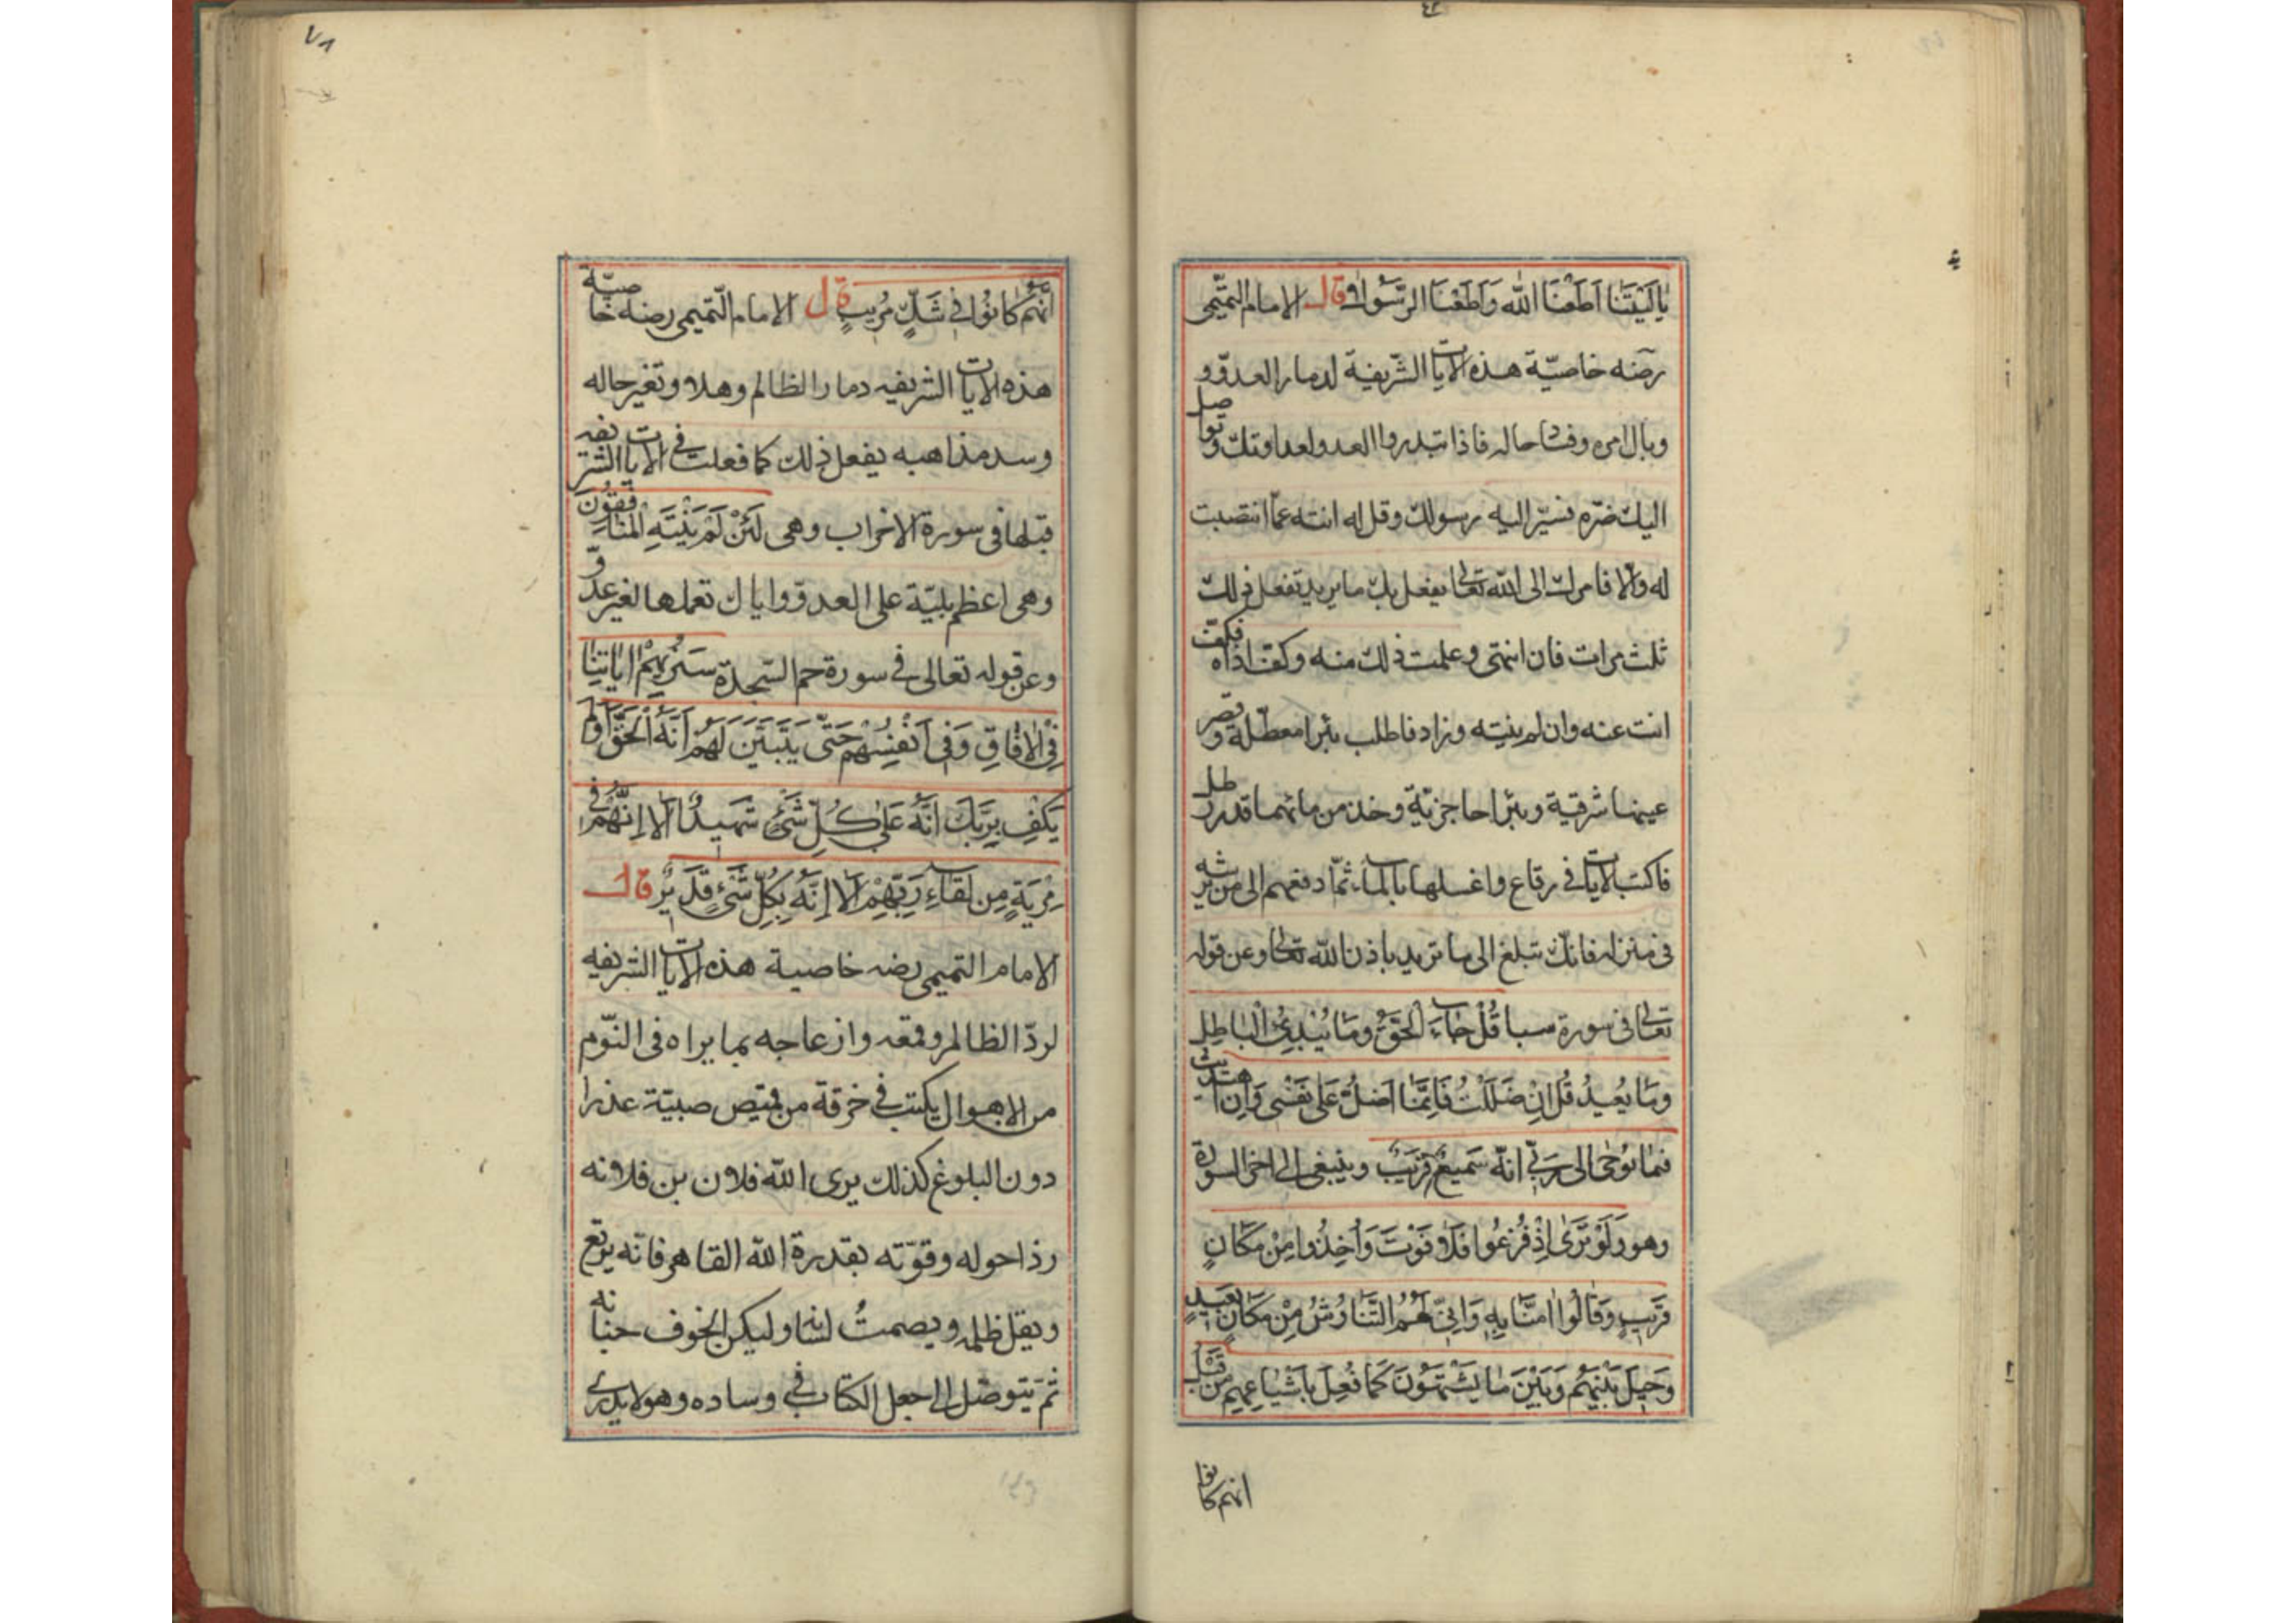 يَا لَيْتَنَا اَطَعْنَا اللّٰه وَاَطَعْنَا الرَّسُولَا وقال الامام التميمى
رضه خاصيّة هذه الايات الشريفة لدمار العدوّ و
وبال امره وفساد حاله فاذا تبدروا العدو لعداوتك وتواصل
اليك ضرّه فسيّر اليه رسولك وقل له انته عمّا انتصبت
له والا فامرك الى الله تعالى يفعل بك ما يريد تفعل ذلك
ثلث مرات فان انتهى وعلمت ذلك منه وكفّ اذاه فكفّ
انت عنه وان لم ينته وزاد فاطلب بئرا معطّلة وقصر
عينها شرقية وبئرا حاجزيّة وخذ من مائهما قدر رطل
فاكتب الايات فى رقاع واغسلها بالماء ثمّ ادفعهم الى من يرشه
فى منزله فانك تبلغ الى ما تريد باذن الله تعالى وعن قوله
تعالى فى سورة سبا قُلْ جَاءَ الْحَقُّ وَمَا يُبْدِئُ الْبَاطِل
وَمَا يُعِيدُ قُل اِنْ ضَلَلْتُ فَاِنَّمَا اَضِلُّ عَلَى نَفْسِى وَاِن اهتديتُ
فبما يُوحٰى الى رَبّى انّه سَمِيعٌ قَرِيبٌ وينبغى الى اخر السورة
وهو وَلَوْ تَرٰى اِذْ فُزِعُوا فَلَا فَوْتَ وَاُخِذُوا مِنْ مَكَانٍ
قَرِيبٍ وَقَالُوا امَنَّا بِهِ وَاَنّى لَهُمُ التَّنَاوُشُ مِنْ مَكَانٍ بَعِيدٍ
وَحِيلَ بَيْنَهُم وَبَيْنَ مَا يَشْتَهُونَ كَمَا فُعِلَ بِاَشْيَاعِهِم مِنْ قَبْلُ
انهم كانوا
٧٨
اِنَّهُم كَانُوا فِى شَكٍّ مُرِيبٍ قال الامام التّميمى رضه خاصيّة
هذه الايات الشريفه دمار الظالم وهلا وتغير حاله
وسد مذاهبه يفعل ذلك كما فعلت فى الايات الشريفه
قبلها فى سورة الاخراب وهى لَئِنْ لَمْ يَنْتَهِ الْمُنَافِقُونَ
وهى اعظم بليّة على العدوّ واياك تعملها لغير عدوّ
وعن قوله تعالى فى سورة حم السّجدة سَنُرِيهِمْ ايَاتِنَا
فِى الْافَاقِ وَفِى اَنْفُسِهُم حَتّٰى يَتَبَيَّنَ لَهُمْ اَنَّهُ الْحَقُّ اَوَلَم
يَكْفِ بِرَبِّكَ اَنَّهُ عَلٰى كُلِّ شَىْءٍ شَهِيدٌ اَلَا اِنَّهُمْ فِى
مِرْيَةٍ مِن لِقَاءِ رَبِّهِمْ اَلَا اِنَّهُ بِكُلِّ شَىْءٍ قَدِيرٌ قال
الامام التميمى رضه خاصية هذه الايات الشريفه
لردّ الظالم وقمعه وازعاجه بما يراه فى النّوم
من الاهوال يكتب فى خرقة من قميص صبيّة عذرا
دون البلوغ كذلك يرى الله فلان بن فلانه
رذا حوله وقوّته بقدرة الله القاهر فانه يرتع
ويقل ظلمه ويصمتُ لسانه وليكن الخوف جنانه
ثم يتوصّل الى اجعل الكتاب فى وساده وهو لا يدرى